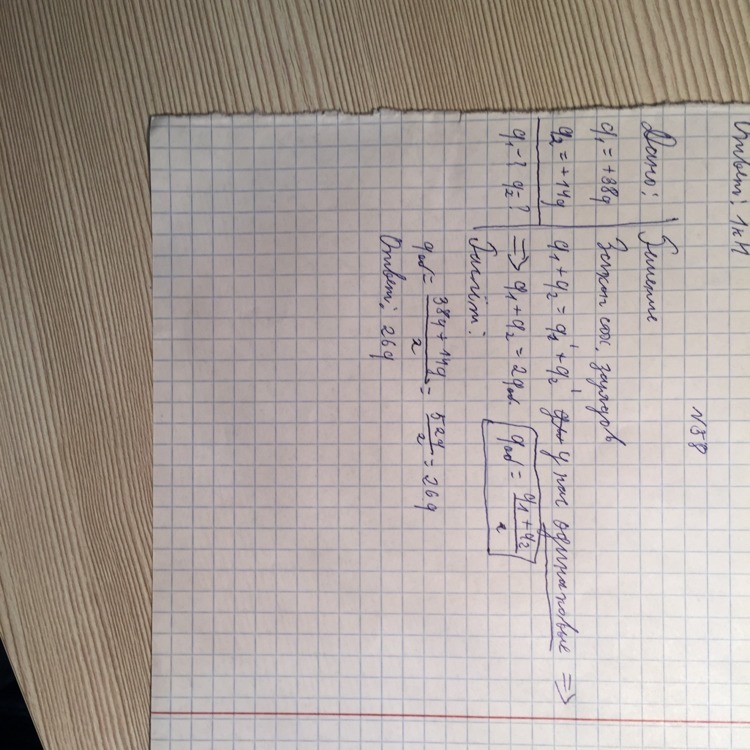 Ответ: 1кН
N58
Дано:
q₁ = +88q
q₂ = +14q
q₁-? q₂-?
Решение
Закон сох. зарядов
q₁ + q₂ = q₁' + q₂' у нас одинаковые ⇒
⇒ q₁ + q₂ = 2qоб. qоб = q₁ + q₂ / 2
qоб = 38q + 14q / 2 = 52q / 2 = 26q
Ответ: 26q